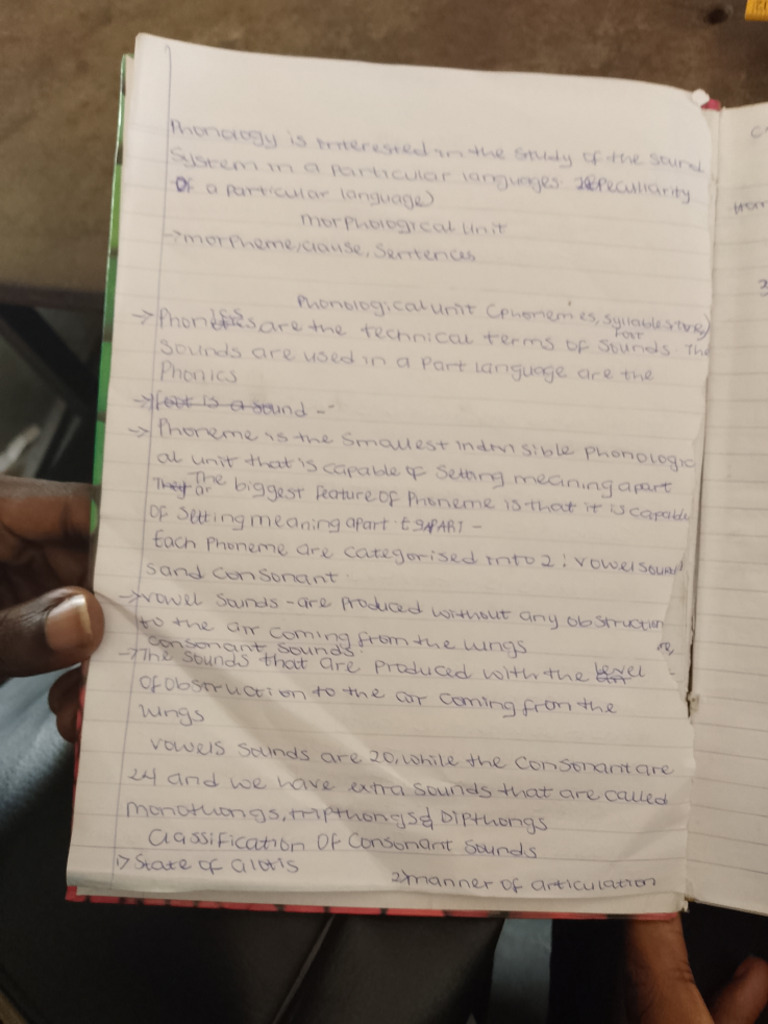 Phonology is interested in the study of the sound
System in a particular languages (Peculiarity
of a particular language)
morphological unit
→morpheme, clause, Sentences
Phonological unit (Phonemes, syllable stress)
→ are the technical terms of sounds. The
sounds are used in a Part language are the
Phonics
→ foot is a sound -
→ Phoneme is the smallest indivisible phonologic
al unit that is capable of setting meaning apart
The biggest feature of Phoneme is that it is capable
of setting meaning apart. APART -
Each Phoneme are categorised into 2: vowel sound
sand consonant.
→vowel sounds - are produced without any obstruction
to the air coming from the lungs
consonant sounds
→The sounds that are produced with the level
of obstruction to the air coming from the
lungs
vowels sounds are 20, while the consonant are
24 and we have extra sounds that are called
monothongs, tripthongs & Dipthongs
Classification Of Consonant Sounds
1> State of Glotis
2>manner of articulation